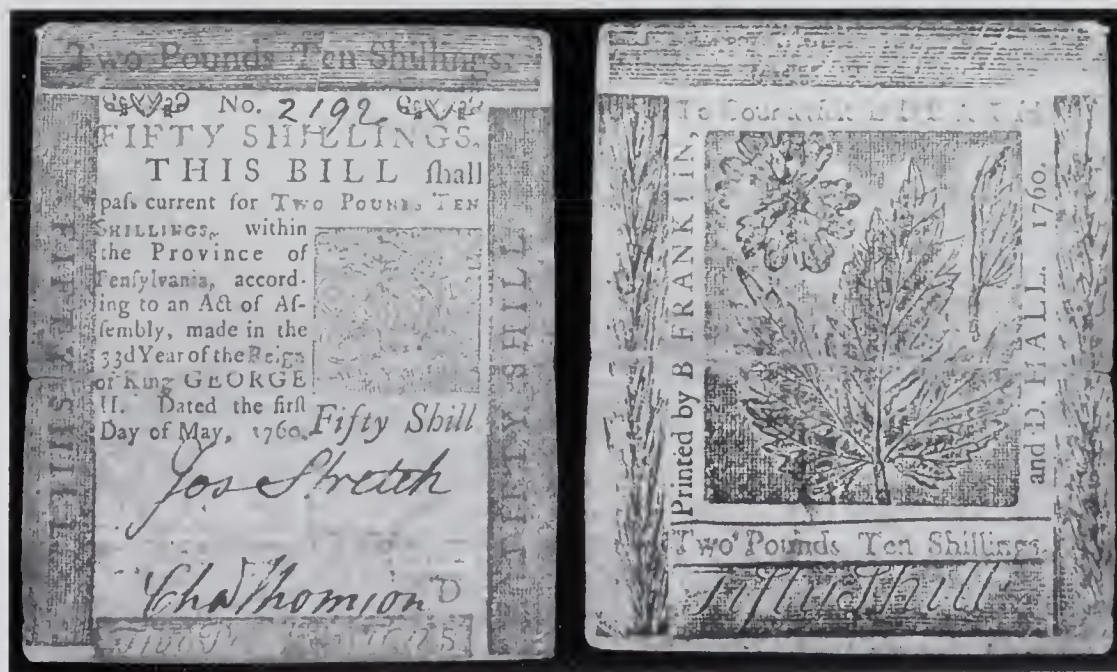 Two Pounds Ten Shillings.
No. 2192
FIFTY SHILLINGS.
THIS BILL ſhall
paſs current for TWO POUNDS TEN
SHILLINGS, within
the Province of
Penſylvania, accord-
ing to an Act of Aſ-
ſembly, made in the
33d Year of the Reign
of King GEORGE
II. Dated the firſt
Day of May, 1760.
Fifty Shill
Jos Stretch
Cha Thomson
D
FIFTY SHILL
To Counterfeit is DEATH
Printed by B FRANKLIN,
and D HALL. 1760.
Two Pounds Ten Shillings.
Fifty Shill